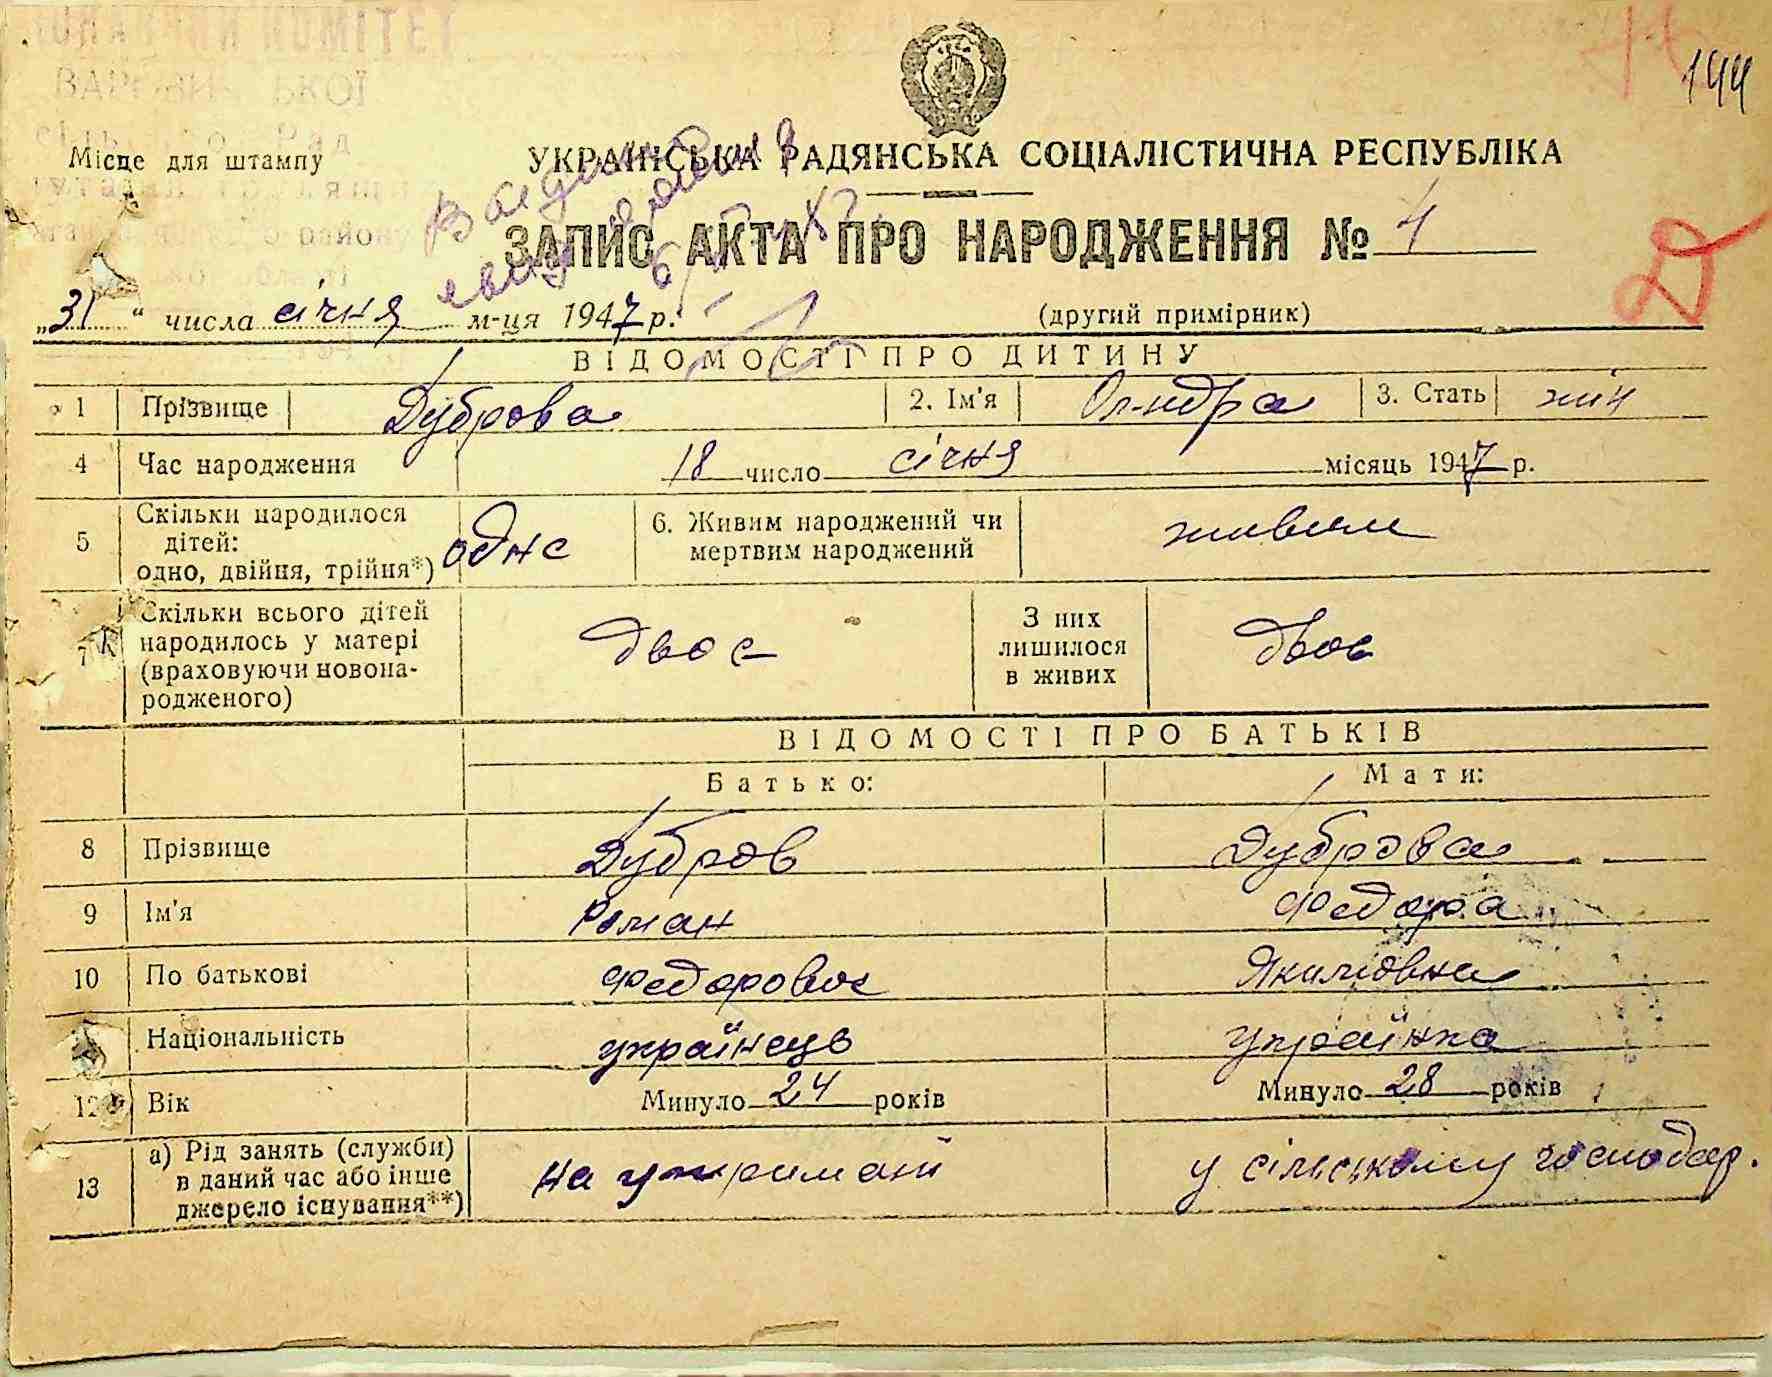 144
Місце для штампу
УКРАЇНСЬКА РАДЯНСЬКА СОЦІАЛІСТИЧНА РЕСПУБЛІКА
ЗАПИС АКТА ПРО НАРОДЖЕННЯ № 4
„31" числа січня м-ця 1947 р. (другий примірник)
ВІДОМОСТІ ПРО ДИТИНУ
1 Прізвище Дуброва 2. Ім'я Ол-ндра 3. Стать жін
4 Час народження 18 число січня місяць 1947 р.
5 Скільки народилося дітей: одно, двійня, трійня*) одне 6. Живим народжений чи мертвим народжений живим
7 Скільки всього дітей народилось у матері (враховуючи новонародженого) двоє З них лишилося в живих двоє
ВІДОМОСТІ ПРО БАТЬКІВ
Батько: Мати:
8 Прізвище Дубров Дуброва
9 Ім'я Роман Федора
10 По батькові Федорович Якимовна
Національність українець українка
12 Вік Минуло 24 років Минуло 28 років
13 а) Рід занять (служби) в даний час або інше джерело існування**) на утримані у сільському господар.